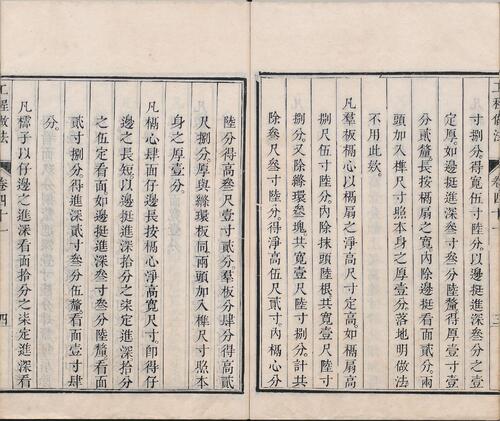 工程做法
三
寸捌分得寬伍寸陸分以邊挺進深叁分之壹
定厚。如邊挺進深叁寸叁分陸釐。得厚壹寸壹
分貳釐。長按槅扇之寬。內除邊挺看面貳分。兩
頭加入榫尺寸。照本身之厚壹分。落地明做法
不用此欵。
凡羣板以槅扇之淨高尺寸定高。如槅扇高
捌尺伍寸陸分。內除抹頭陸根共寬壹尺陸
寸捌分。又除絛環叁塊共寬壹尺陸寸捌分。計共
除叁尺叁寸陸分。得淨高伍尺貳寸。內槅心分
陸分得高叁尺壹寸貳分。羣板分肆分得高貳
尺捌分。厚與絛環板同。兩頭加入榫尺寸照本
身之厚壹分。
凡槅心肆面仔邊長按槅心淨高寬尺寸。卽得仔
邊之長短。以邊挺進深拾分之柒定進深。拾分
之伍定看面。如邊挺進深叁寸叁分陸釐。看面
貳寸捌分。得進深貳寸叁分伍釐。看面壹寸肆
分。
凡櫺子以仔邊之進深看面拾分之柒定進深看
工程做法
卷四十一
四